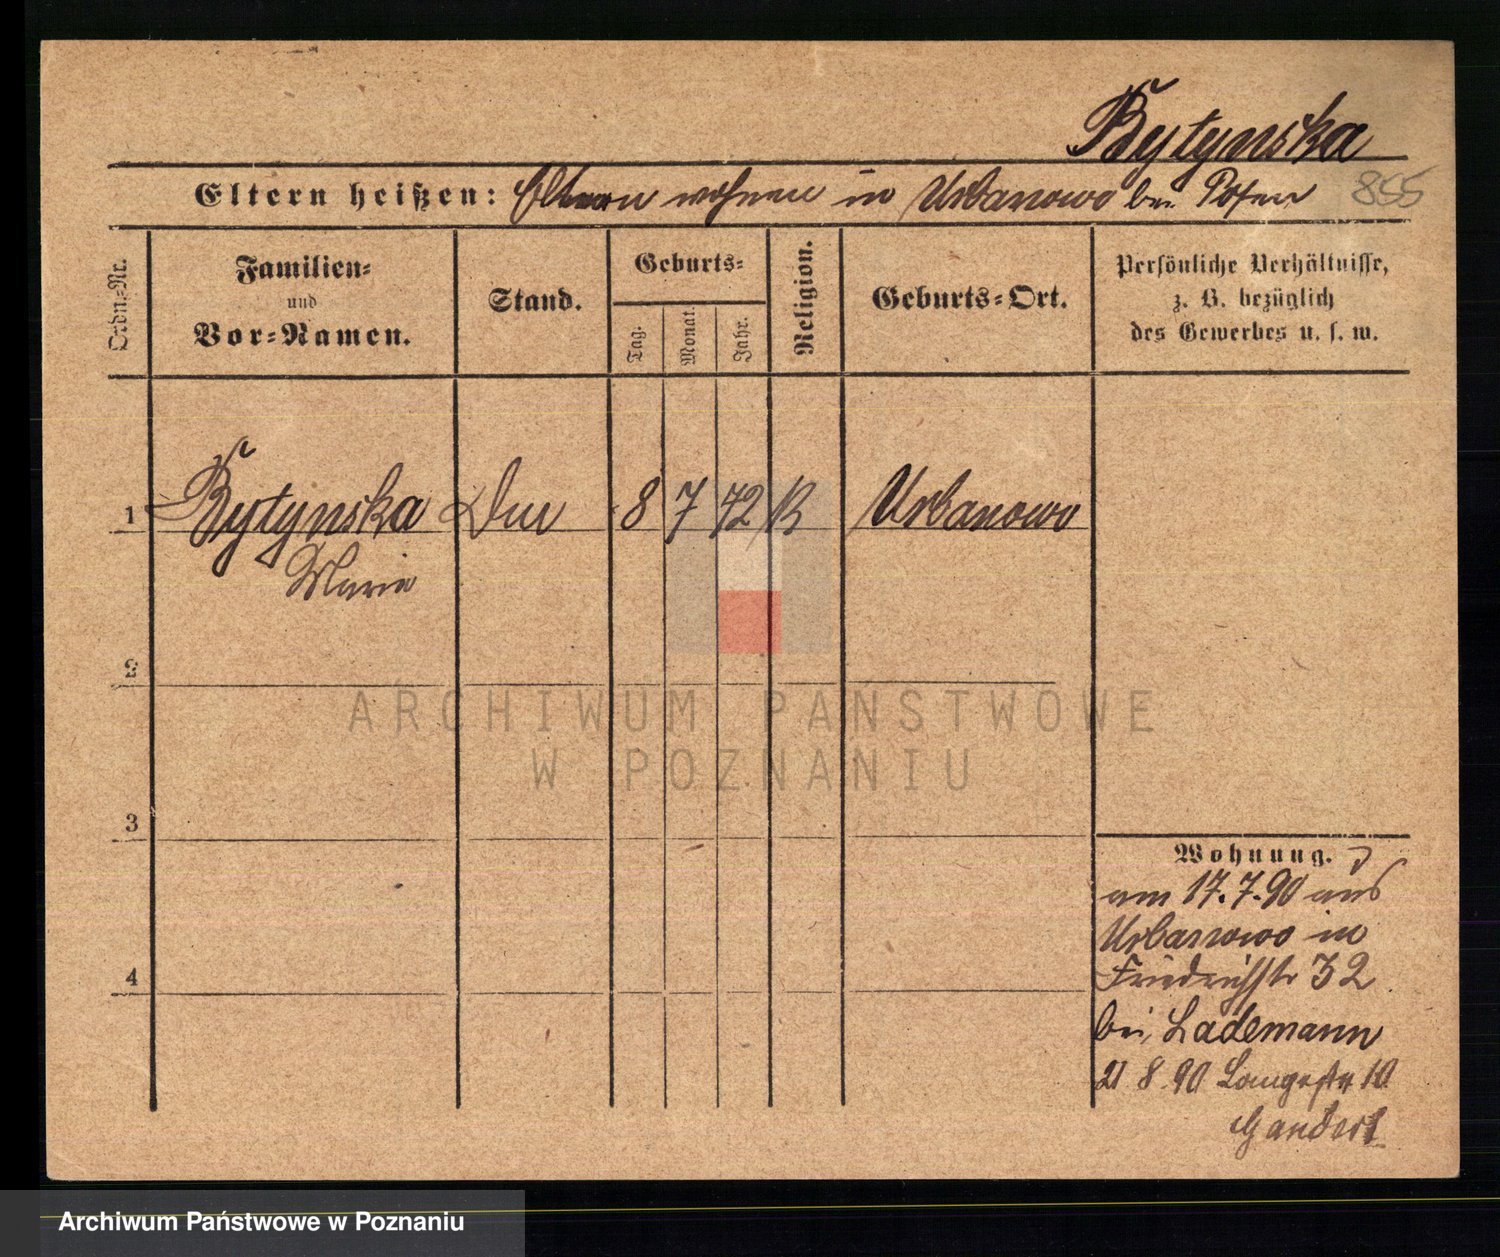 Bytynska
Eltern heißen: Eltern wohnen in Urbanowo bei Posen 855
Ordn.-Nr.
Familien-
und
Vor-Namen.
Stand.
Geburts-
Tag.
Monat.
Jahr.
Religion.
Geburts-Ort.
Persönliche Verhältnisse,
z. B. bezüglich
des Gewerbes u. s. w.
1 Bytynska 8 7 72 Urbanowo
Marie
2
3
4
Wohnung.
am 17.7.90 aus
Urbanowo in
Friedrichstr 32
bei Lademann
21 8 90 Langestr 10
Gandert
ARCHIWUM PAŃSTWOWE
W POZNANIU
Archiwum Państwowe w Poznaniu